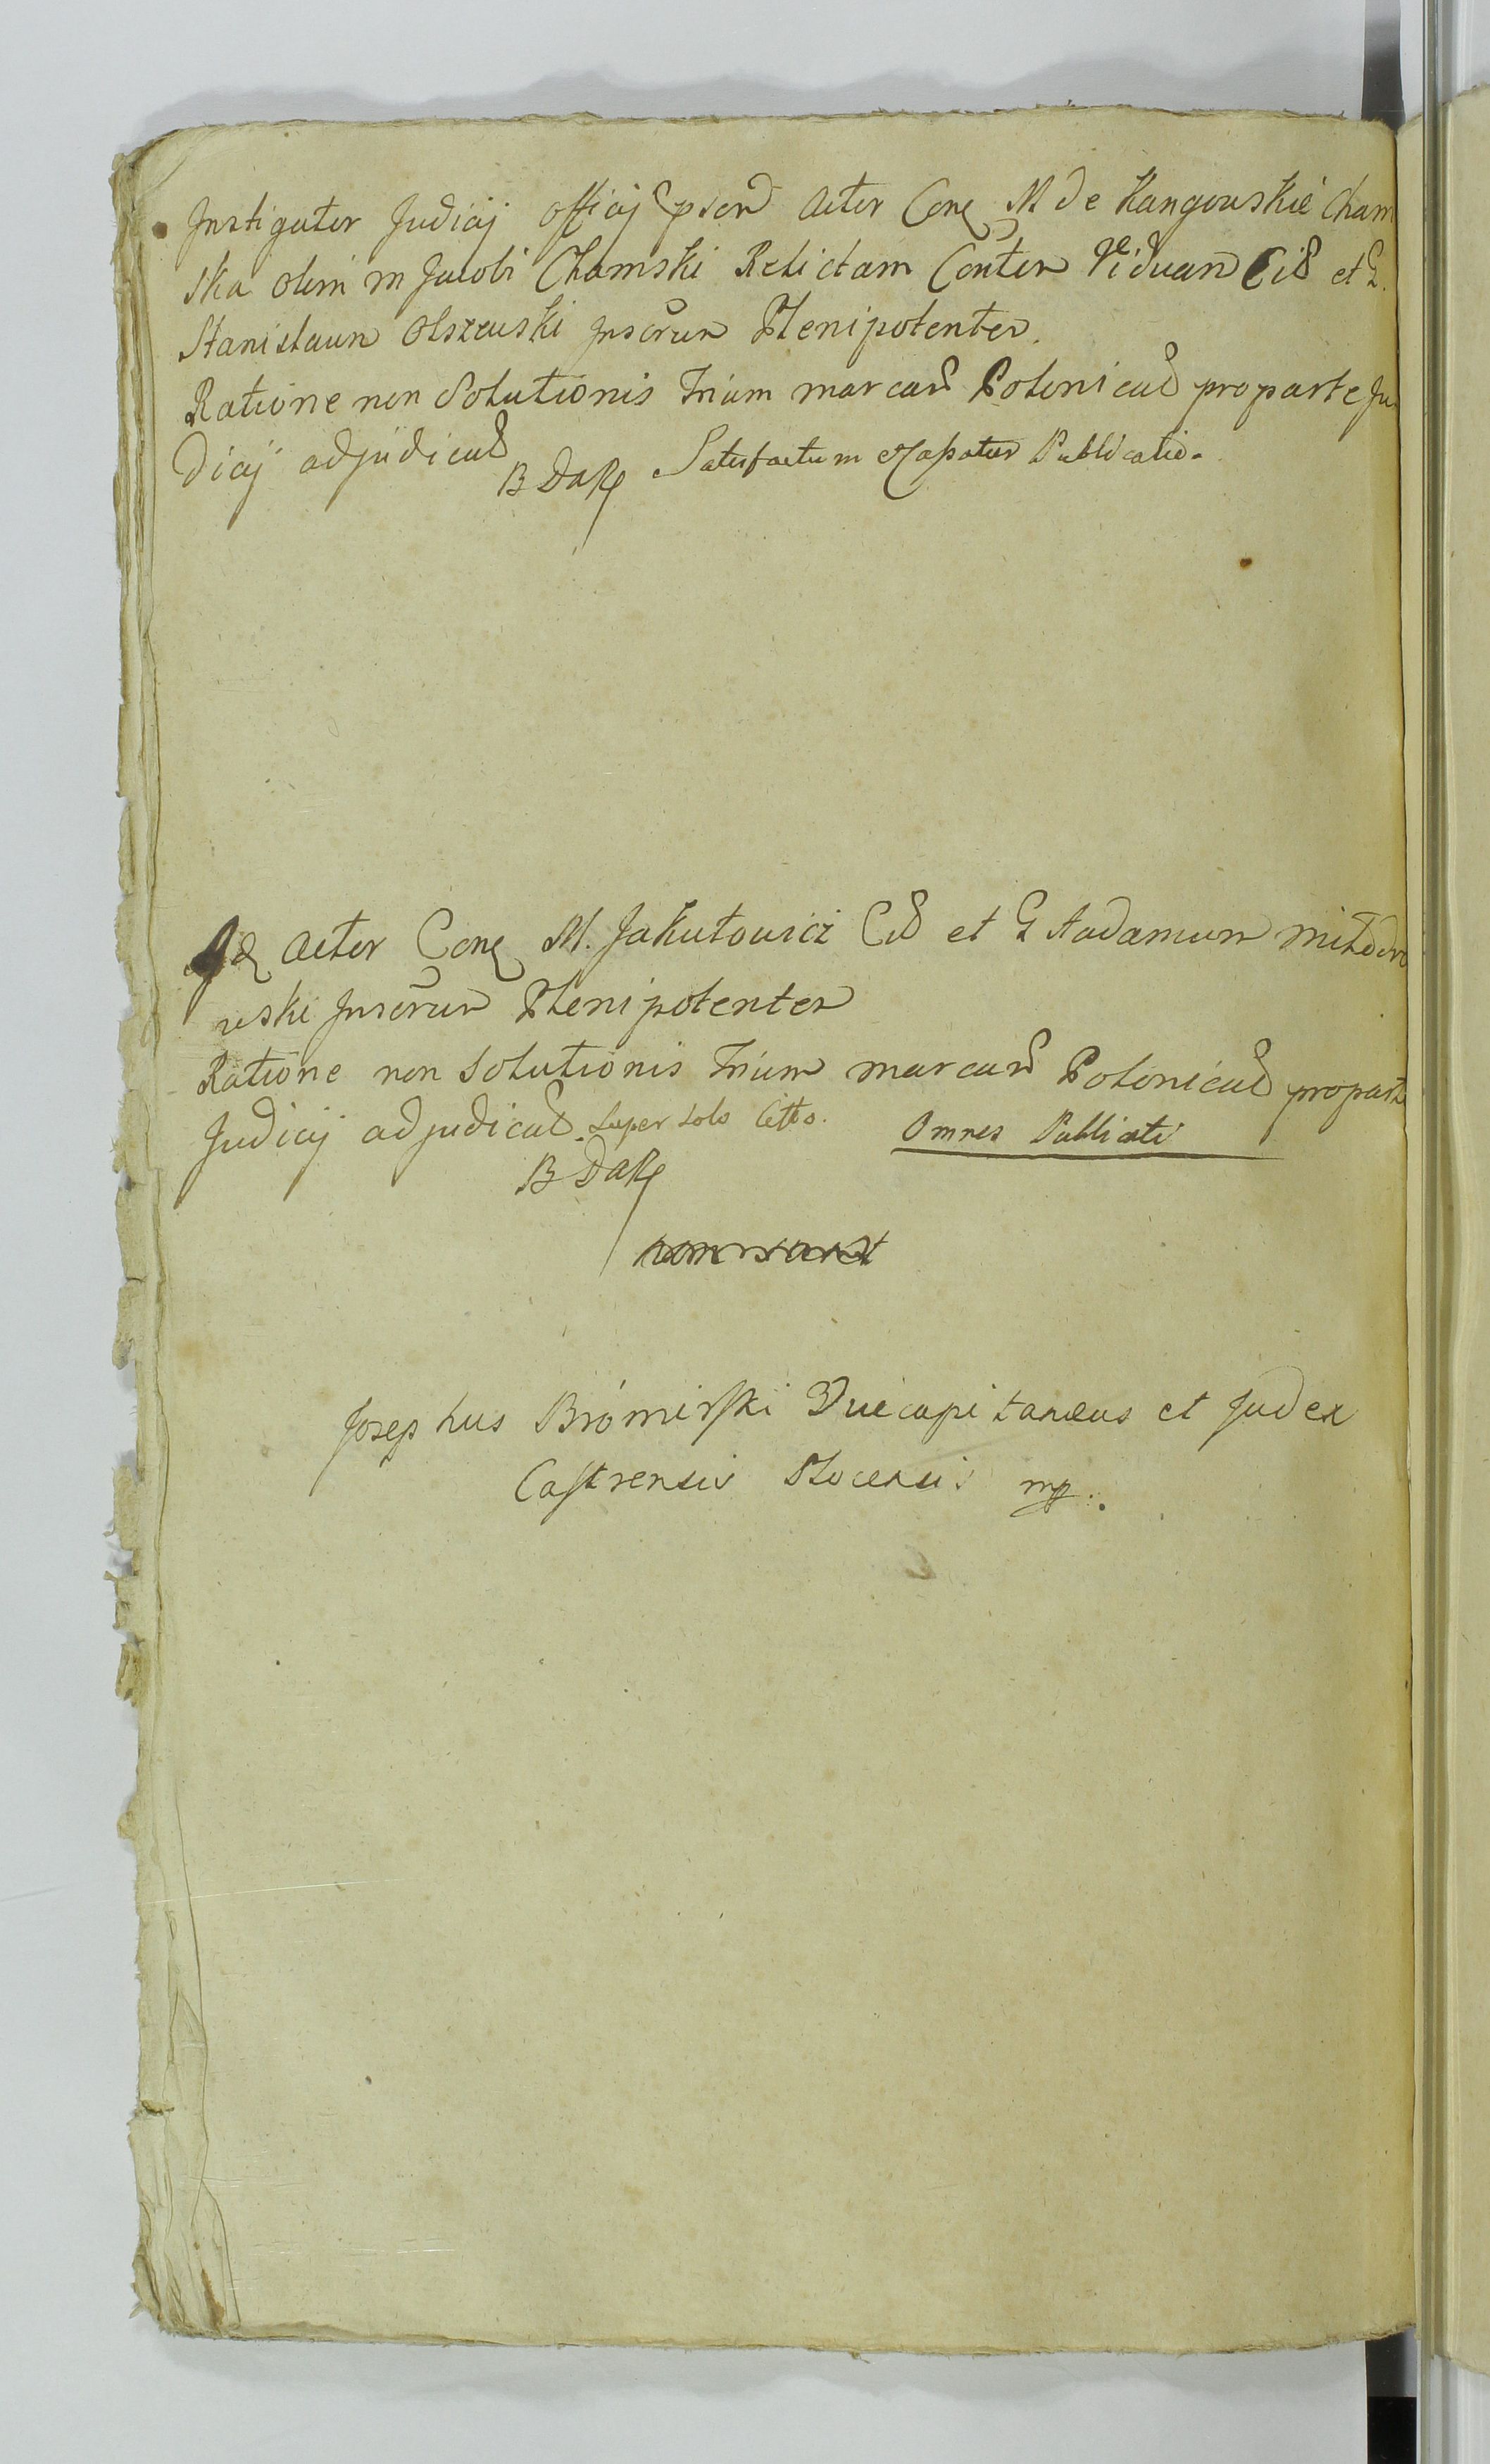 Instigator Judicij Officij pscrn Actor Conq M de Kangowskie Cham
ska olim M Jacobi Chamski Relictam Conter Viduam Cit et G.
Stanislaum Olszewski Inscrum Plenipotenten
Ratione non Solutionis Trium marcarum Polonical pro parte Ju
dicij adjudical
B Dak Satisfactum Publicatio.
Actor Conq M. Jakutowicz Cit et G Aadamum
wski Inscrum Plenipotenten
Ratione non Solutionis Trium marcarum Polonical pro parte
Judicij adjudical super solo Citto. Omnes Publicati
B Dak
Josephus Bromirski Vicecapitaneus et Judex
Castrensis Plocensis mp.